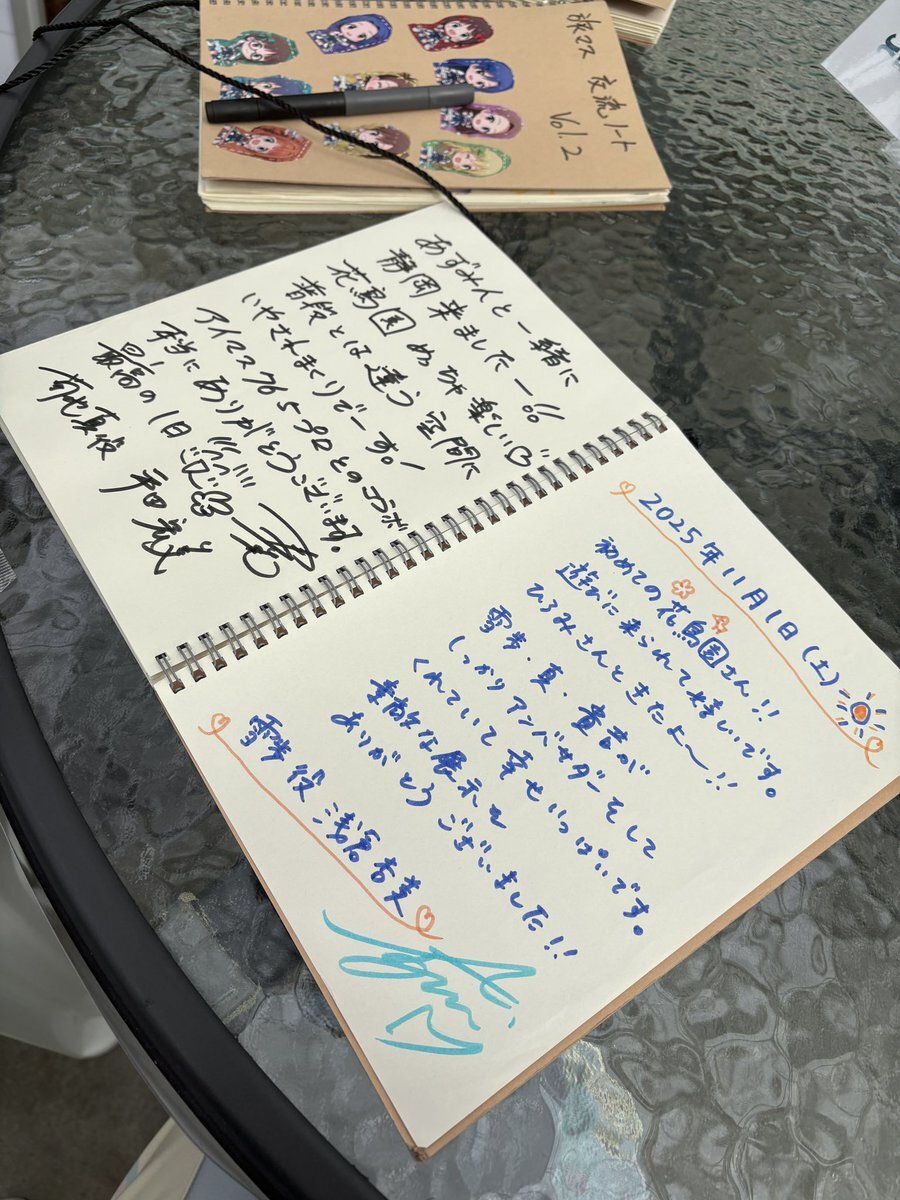 旅マス 交流ノート
Vol.2
あずみんと一緒に
静岡来ましたー!!
花鳥園 めっちゃ楽しい♡
普段とは違う空間に
いやされまくりでーす!
アイマス765プロとのコラボ
本当にありがとうございます。
最高の1日
菊地真役 平田宏美
2025年11月1日(土)
初めての花鳥園さん!!
遊びに来られて嬉しいです。
ひろみさんときたよ〜!!
雪歩・真・貴音が
しっかりアンバサダーをして
くれていて幸せいっぱいです。
素敵な展示を
ありがとうございました!!
雪歩役 浅倉杏美